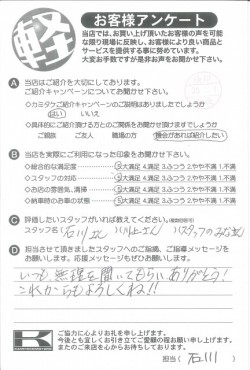 軽
お客様アンケート
当店では、お買い上げ頂いたお客様の声を可能
な限り現場に反映し、お客様により良い商品と
サービスを提供する事に努めています。
大変お手数ですが是非お声をお聞かせ下さい。
A 当店はご紹介を大切にしております。
ご紹介キャンペーンについてお聞かせ下さい。
◇カミタケご紹介キャンペーンのご説明はありましたでしょうか
はい いいえ
◇具体的にご紹介頂ける方とのご関係をお聞かせ頂けますでしょうか
ご親族 ご友人 職場の方 機会があれば紹介したい
B 当店を実際にご利用になった印象をお聞かせ下さい。
◇総合的な満足度 5.大満足 4.満足 3.ふつう 2.やや不満 1.不満
◇スタッフの対応 5.大満足 4.満足 3.ふつう 2.やや不満 1.不満
◇お店の雰囲気、清掃 5.大満足 4.満足 3.ふつう 2.やや不満 1.不満
◇納車時のお車の状態 5.大満足 4.満足 3.ふつう 2.やや不満 1.不満
C 評価したいスタッフがいれば教えてください。
スタッフ名 石川さん 川上さん スタッフのみなさん
D 担当させて頂きましたスタッフへのご指摘、ご指導メッセージを
お願いします。応援メッセージもぜひお願いします。
いつも無理を聞いてもらいありがとう!
これからもよろしくね!!
K
ご協力に心よりお礼を申し上げます。
今後とも宜しくお引き立てご愛顧の程お願い申し上げます。
またのご来店を心からお待ちしております。
担当 ( 石川 )